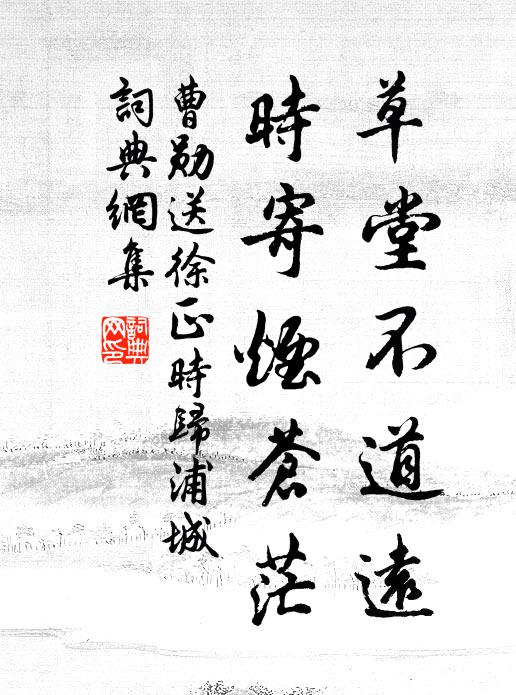 草堂不道遠
時寄煙蒼茫
曹勛送徐正時歸浦城
詞典網集
詞典网印